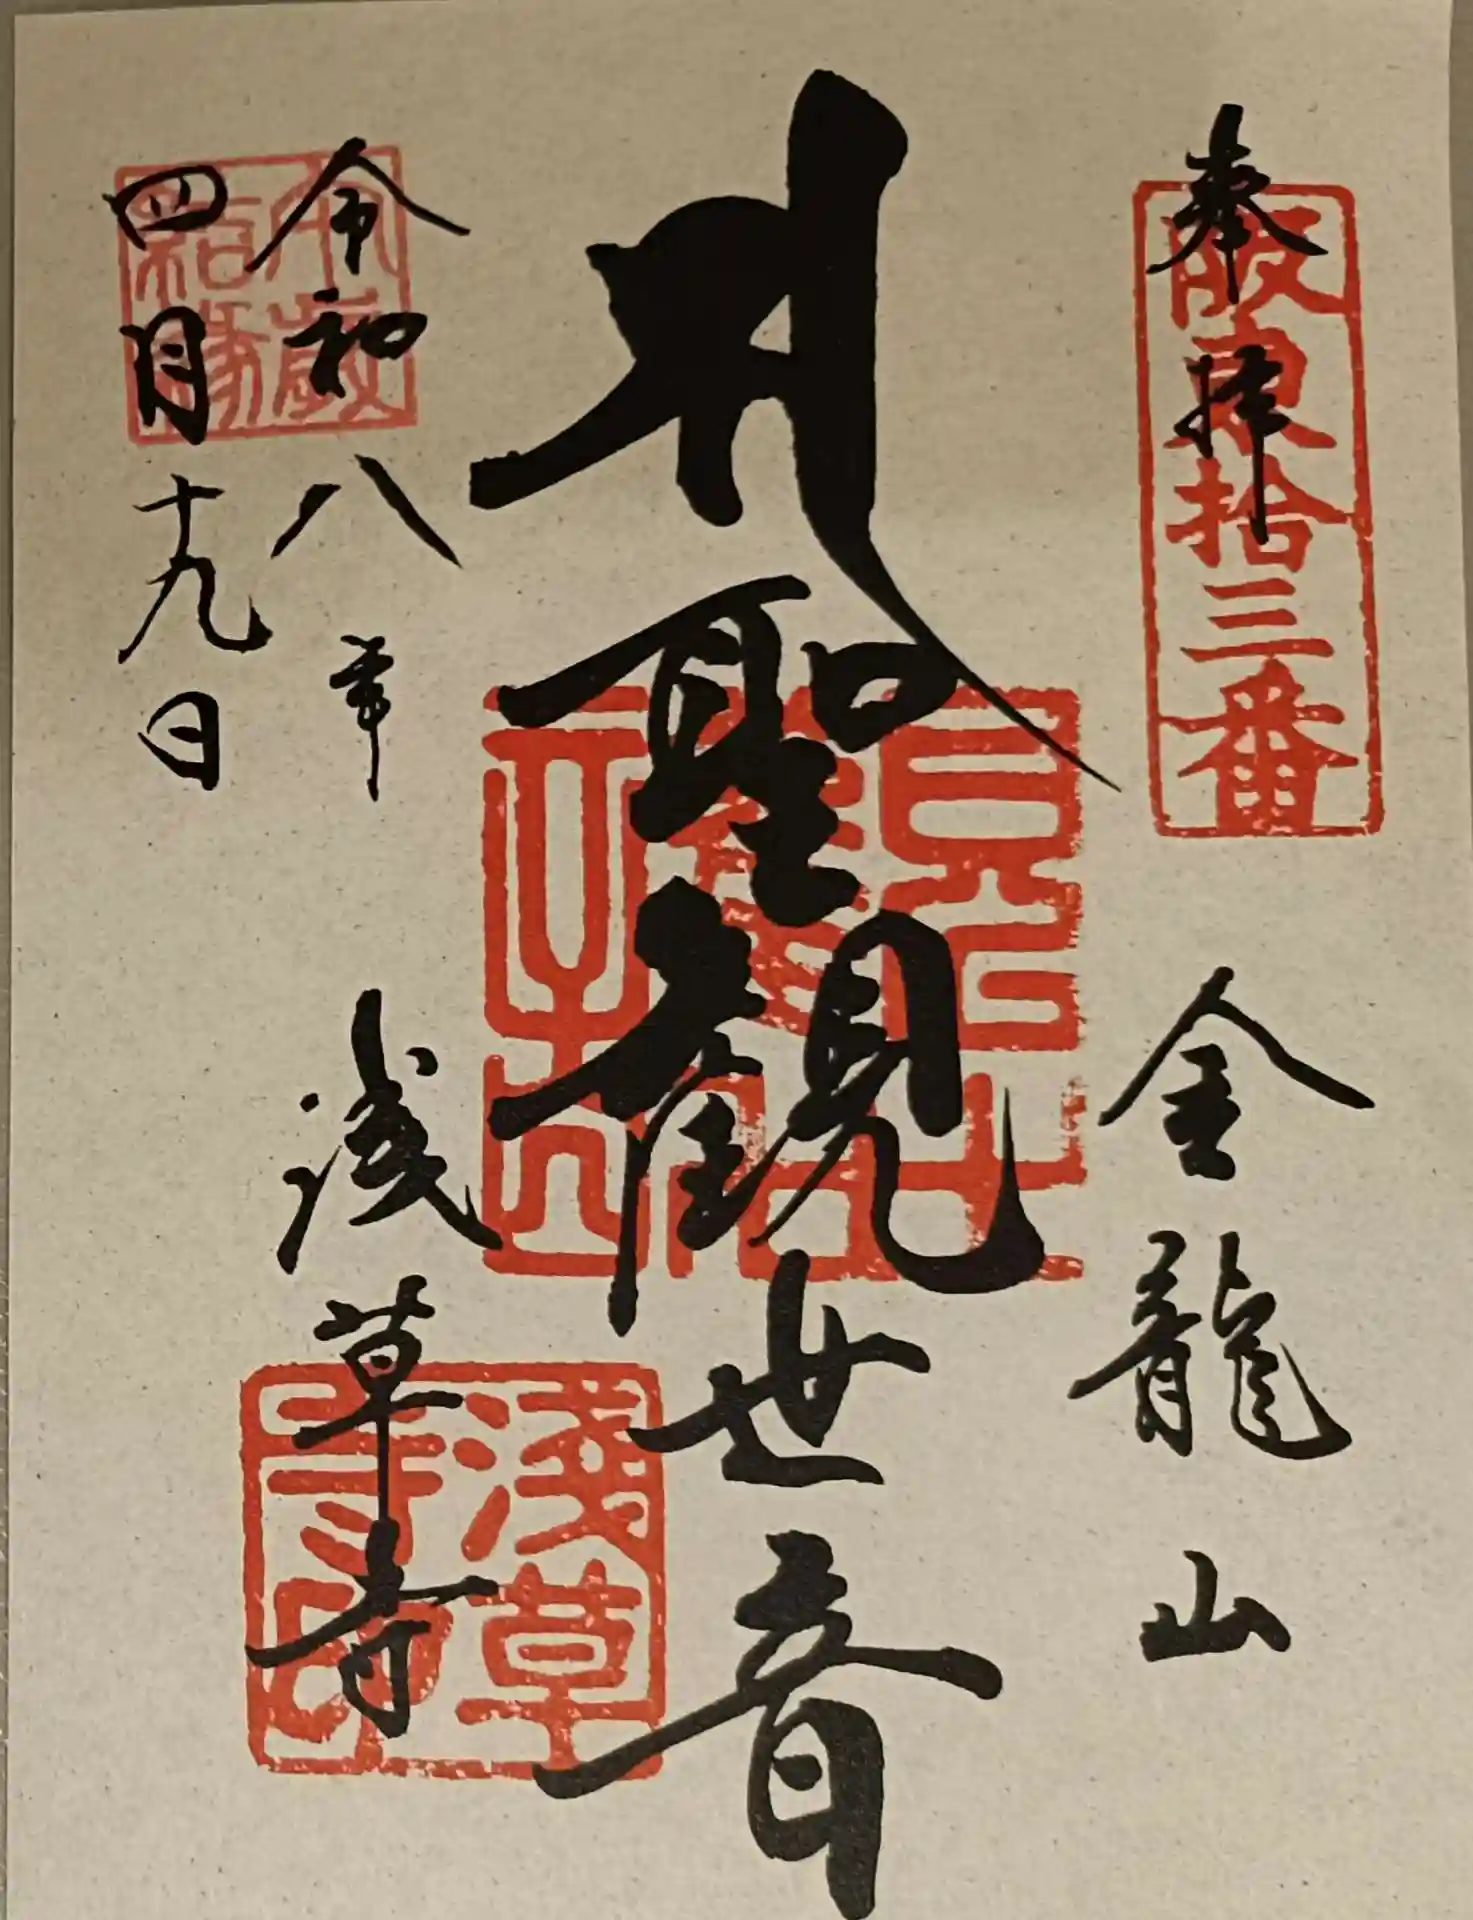 奉拝
坂東拾三番
金龍山
聖観世音
令和八年
四月十九日
浅草寺
淺草寺印